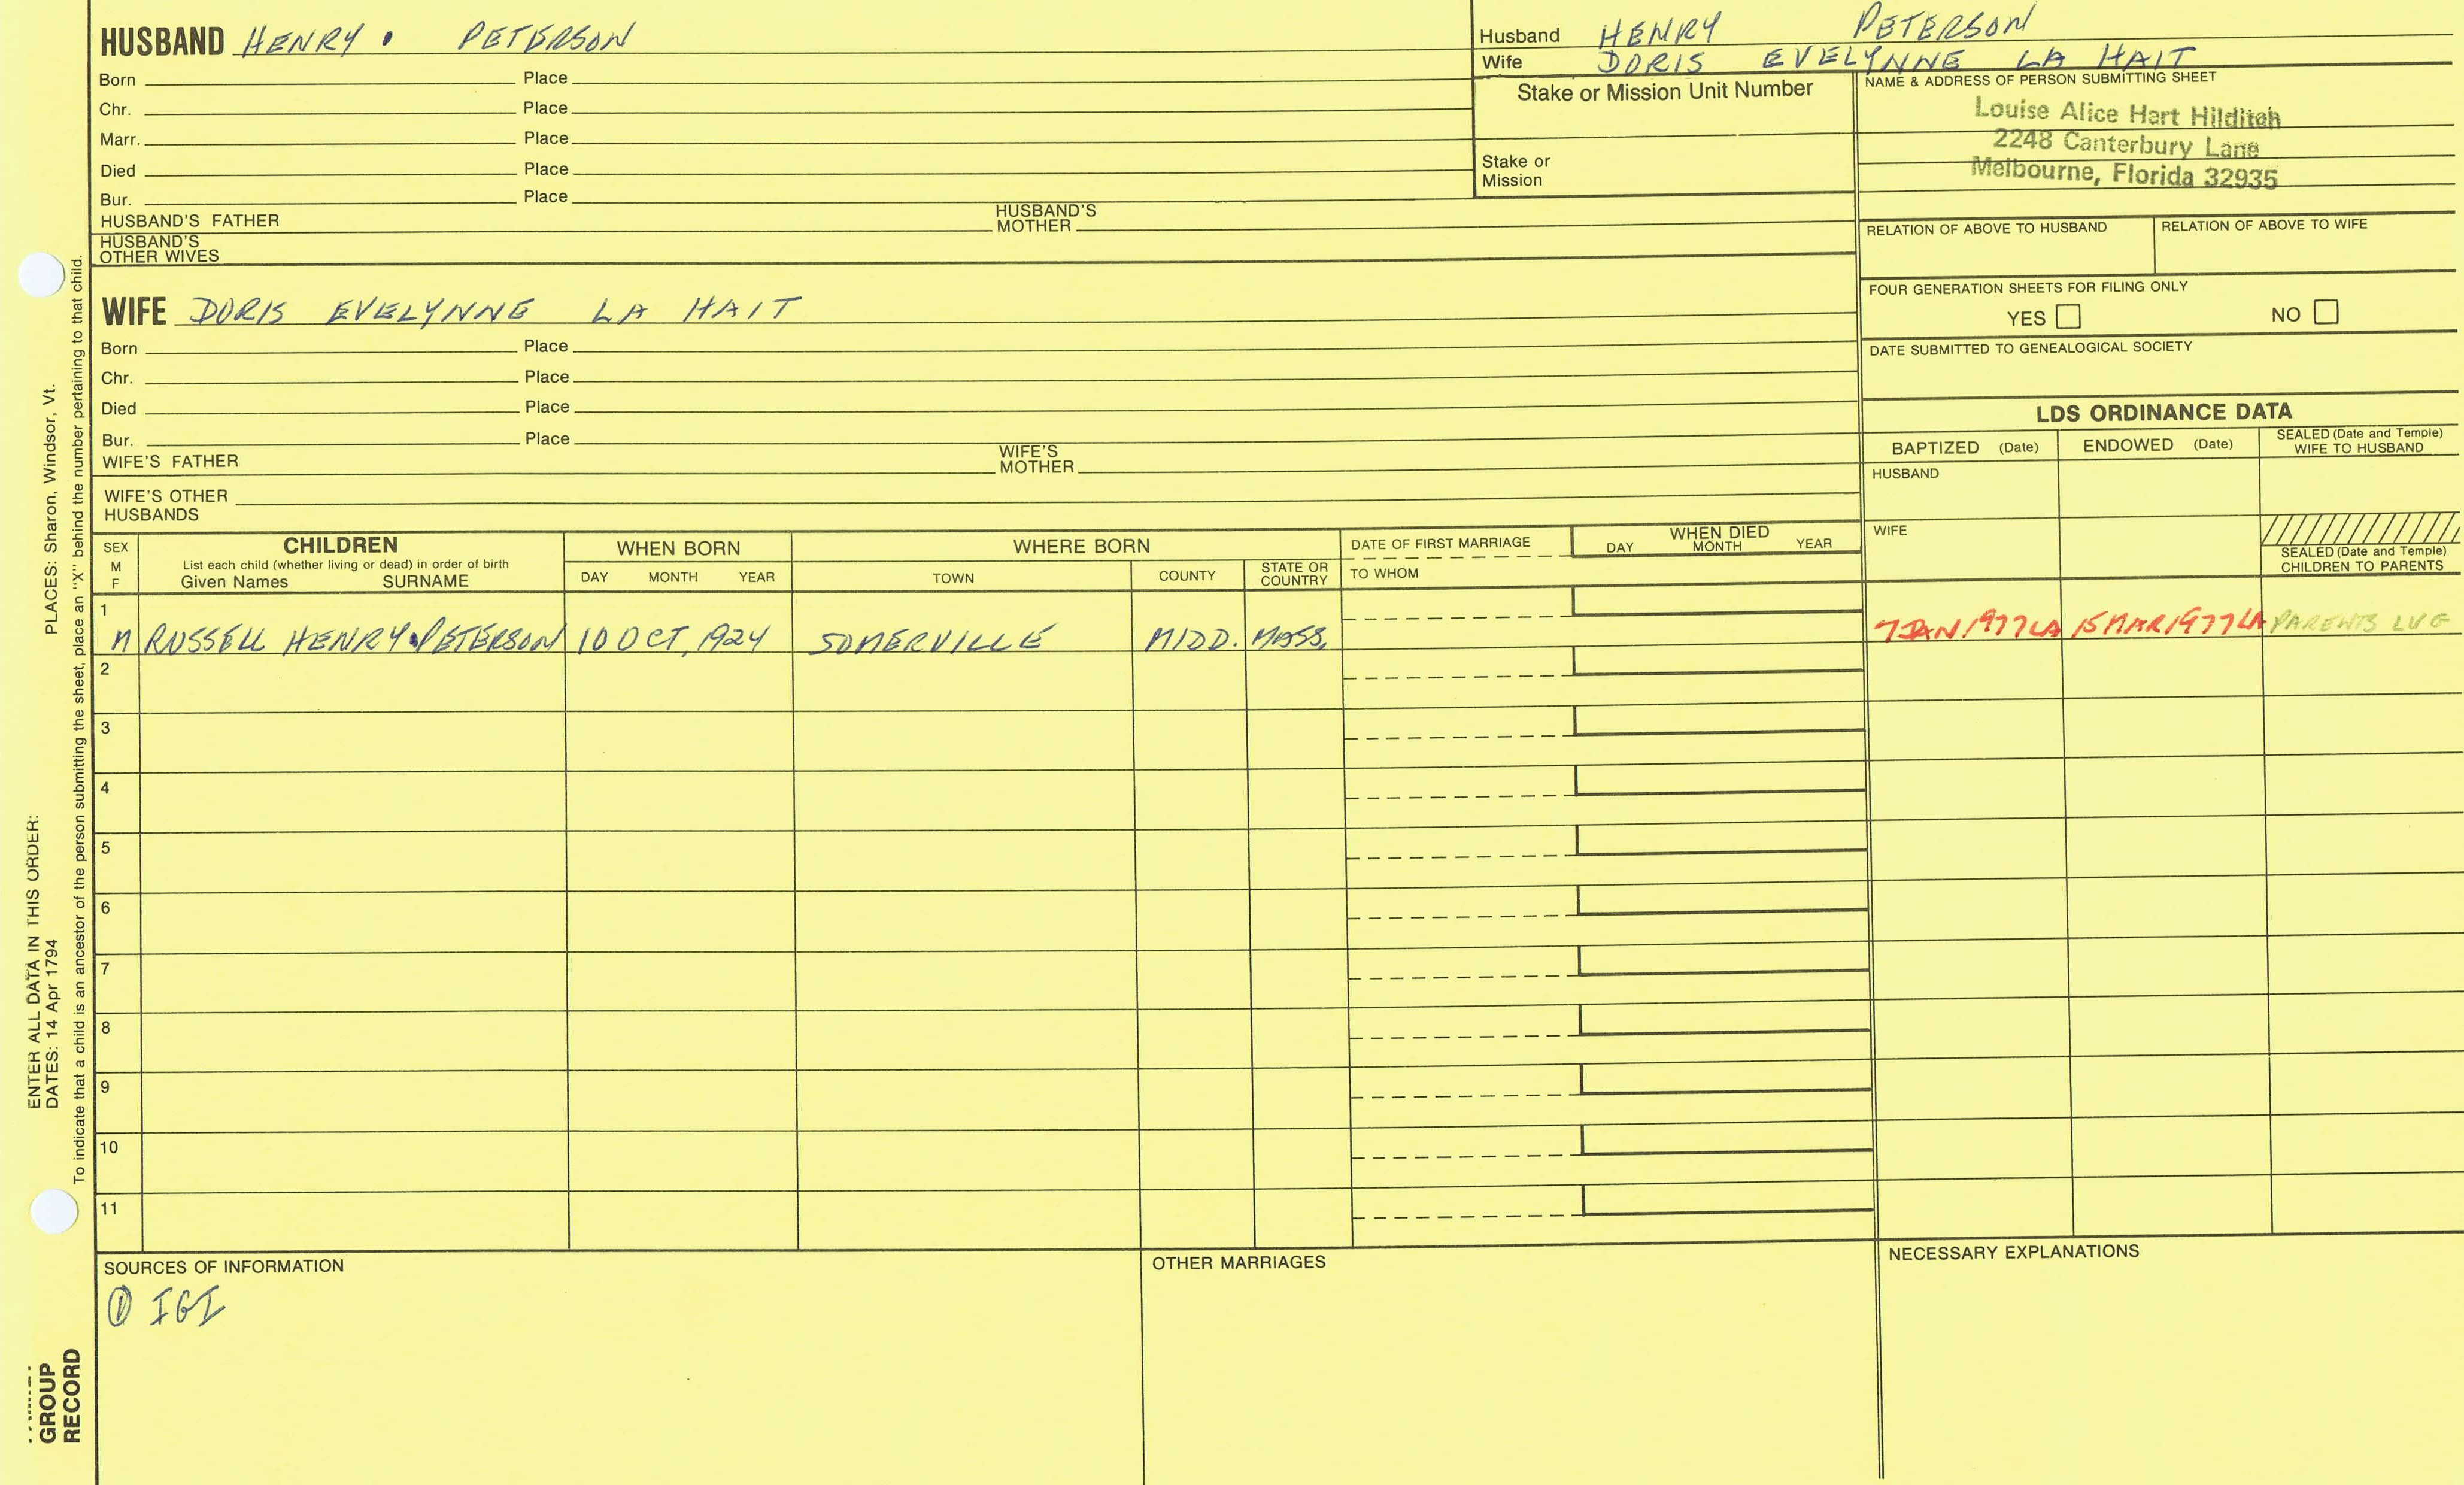 HUSBAND HENRY . PETERSON
Born Place
Chr. Place
Marr. Place
Died Place
Bur. Place
HUSBAND'S FATHER HUSBAND'S MOTHER
HUSBAND'S OTHER WIVES
WIFE DORIS EVELYNNE LA HAIT
Born Place
Chr. Place
Died Place
Bur. Place
WIFE'S FATHER WIFE'S MOTHER
WIFE'S OTHER HUSBANDS
Husband HENRY PETERSON
Wife DORIS EVELYNNE LA HAIT
Stake or Mission Unit Number
Stake or Mission
NAME & ADDRESS OF PERSON SUBMITTING SHEET
Louise Alice Hart Hilditch
2248 Canterbury Lane
Melbourne, Florida 32935
RELATION OF ABOVE TO HUSBAND RELATION OF ABOVE TO WIFE
FOUR GENERATION SHEETS FOR FILING ONLY
YES NO
DATE SUBMITTED TO GENEALOGICAL SOCIETY
LDS ORDINANCE DATA
BAPTIZED (Date) ENDOWED (Date) SEALED (Date and Temple) WIFE TO HUSBAND
HUSBAND
WIFE
SEALED (Date and Temple) CHILDREN TO PARENTS
SEX M F
CHILDREN
List each child (whether living or dead) in order of birth
Given Names SURNAME
WHEN BORN
DAY MONTH YEAR
WHERE BORN
TOWN COUNTY STATE OR COUNTRY
DATE OF FIRST MARRIAGE
TO WHOM
WHEN DIED
DAY MONTH YEAR
1
M RUSSELL HENRY PETERSON 10 OCT, 1924 SOMERVILLE MIDD. MASS. 7 JAN 1977 LA 15 MAR 1977 LA PARENTS LVG
2
3
4
5
6
7
8
9
10
11
SOURCES OF INFORMATION
① IGI
OTHER MARRIAGES
NECESSARY EXPLANATIONS
ENTER ALL DATA IN THIS ORDER:
DATES: 14 Apr 1794 PLACES: Sharon, Windsor, Vt.
To indicate that a child is an ancestor of the person submitting the sheet, place an "X" behind the number pertaining to that child.
GROUP
RECORD